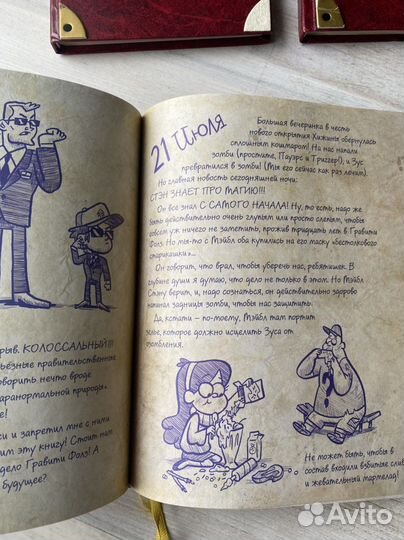 рыв. КОЛОССАЛЬНЫЙ!!!
рьёзные правительственные
говорить нечто вроде
аранормальной природы»
е!
си и запретил мне с ними
им эту книгу! Стоит нам
дело Гравити Фолз?
будущее?
21 Июля
Большая вечеринка в честь
нового открытия Хижины обернулась
сплошным кошмаром! На нас напали
зомби (простите, Пауэрс и Триггер!), и Зус
превратился в зомби! (Мы его сейчас как раз лечим).
Но главная новость сегодняшней ночи:
СТЭН ЗНАЕТ ПРО МАГИЮ!!!
Он всё знал С САМОГО НАЧАЛА! Ну, то есть, надо же
быть действительно очень глупым или просто слепым, чтобы
совсем уж ничего не заметить, прожив тридцать лет в Гравити
Фолз. Но мы-то с Мэйбл оба купились на его маску «бестолкового
старикашки»...
Он говорит, что врал, чтобы уберечь нас, ребятишек. В
глубине души я думаю, что дело не только в этом. Но Мэйбл
Стэну верит, и, надо сознаться, он действительно здорово
начинал задницы зомби, чтобы нас защитить.
Да, кстати – по-моему, Мэйбл там портит
зелье, которое должно исцелить Зуса от
зомбления.
Не может быть, чтобы в
состав входили взбитые слив
и жевательный мармелад!
Avito